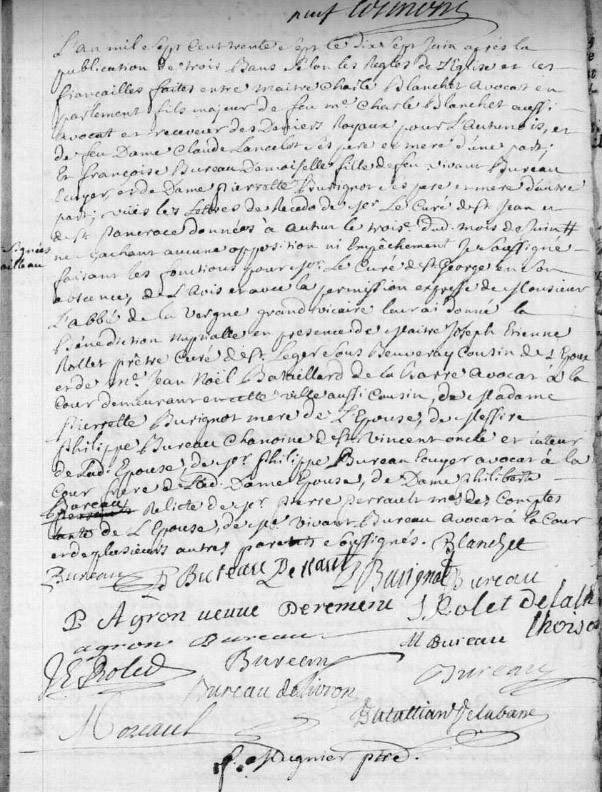 L'an mil sept cent trente sept le dix sept Juin après la
publication de trois Bans selon les Regles de L'Eglise et les
fiancailles faites entre maitre Charle Blanchet avocat en
parlement fils majeur de feu me. Charle Blanchet aussi
avocat et receveur des Deniers Royaux pour L'autunois, et
de feu Dame Claude Lancelot ses pere et mere d'une part;
Et francoise Bureau Demoiselle fille de feu vivant Bureau
Ecuyer, et de Dame pierrette Burignot ses pere et mere d'autre
part; vües les Lettres de Recedo de Mrs. Les Curé de st Jean et
de st pancrace données a autun le trois. dud. mois de Juin
ne sachant aucune opposition ni Empêchement Je soussigné
faisant les fonctions pour Mr. Le Curé de st George en son
absence, de L'avis et avec la permission expresse de Monsieur
L'abbé de la vergne grand vicaire leur ai donné la
Bénédiction nuptialle en presence de Maitre Joseph Etienne
Rollet prêtre Curé de st. Leger sous Beuvray Cousin de L'Epoux
et de me. Jean Noël Bataillard de la Barre avocat à la
Cour demeurant en cette ville aussi Cousin, de Madame
Pierrette Burignot mere de L'Epouse, de Messire
Philippe Bureau Chanoine de st vincent oncle et
de Lad. Epouse, de Sr. Philippe Bureau Ecuyer avocat à la
Cour frere de Lad. Dame Epouse, de Dame philiberte
Bureau Relicte de Sr. pierre perrault me des Comptes
tante de L'Epouse, de Mr vivant Bureau avocat à la Cour
et de plusieurs autres parents soussignés. Blanchet
Bureau P Bureau Perrault P Burignot Bureau
P Agron veuve J Rolet de la
agron Bureau M Bureau
JE Rolet Bureau Bureau
Bureau de livron
Batailliard Delabare
ptre.